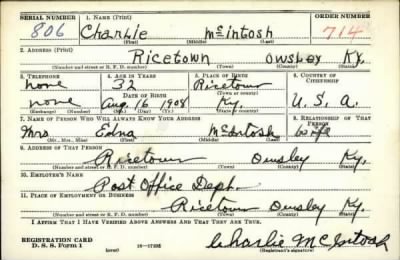 SERIAL NUMBER 1. NAME (Print) ORDER NUMBER
806 Charlie McIntosh 714
(First) (Middle) (Last)
2. ADDRESS (Print)
Ricetown Owsley Ky.
(Number and street or R. F. D. number) (Town) (County) (State)
3. TELEPHONE 4. AGE IN YEARS 5. PLACE OF BIRTH 6. COUNTRY OF CITIZENSHIP
none 32 Ricetown
DATE OF BIRTH (Town or county)
none Aug. 16 1908 Ky. U. S. A.
(Exchange) (Number) (Mo.) (Day) (Yr.) (State or country)
7. NAME OF PERSON WHO WILL ALWAYS KNOW YOUR ADDRESS 8. RELATIONSHIP OF THAT PERSON
Mrs Edna McIntosh Wife
(Mr., Mrs., Miss) (First) (Middle) (Last)
9. ADDRESS OF THAT PERSON
Ricetown Owsley Ky.
(Number and street or R. F. D. number) (Town) (County) (State)
10. EMPLOYER'S NAME
Post Office Dept.
11. PLACE OF EMPLOYMENT OR BUSINESS
Ricetown Owsley Ky.
(Number and street or R. F. D. number) (Town) (County) (State)
I AFFIRM THAT I HAVE VERIFIED ABOVE ANSWERS AND THAT THEY ARE TRUE.
REGISTRATION CARD
D. S. S. Form 1 (over) 16—17105 Charlie McIntosh
(Registrant's signature)